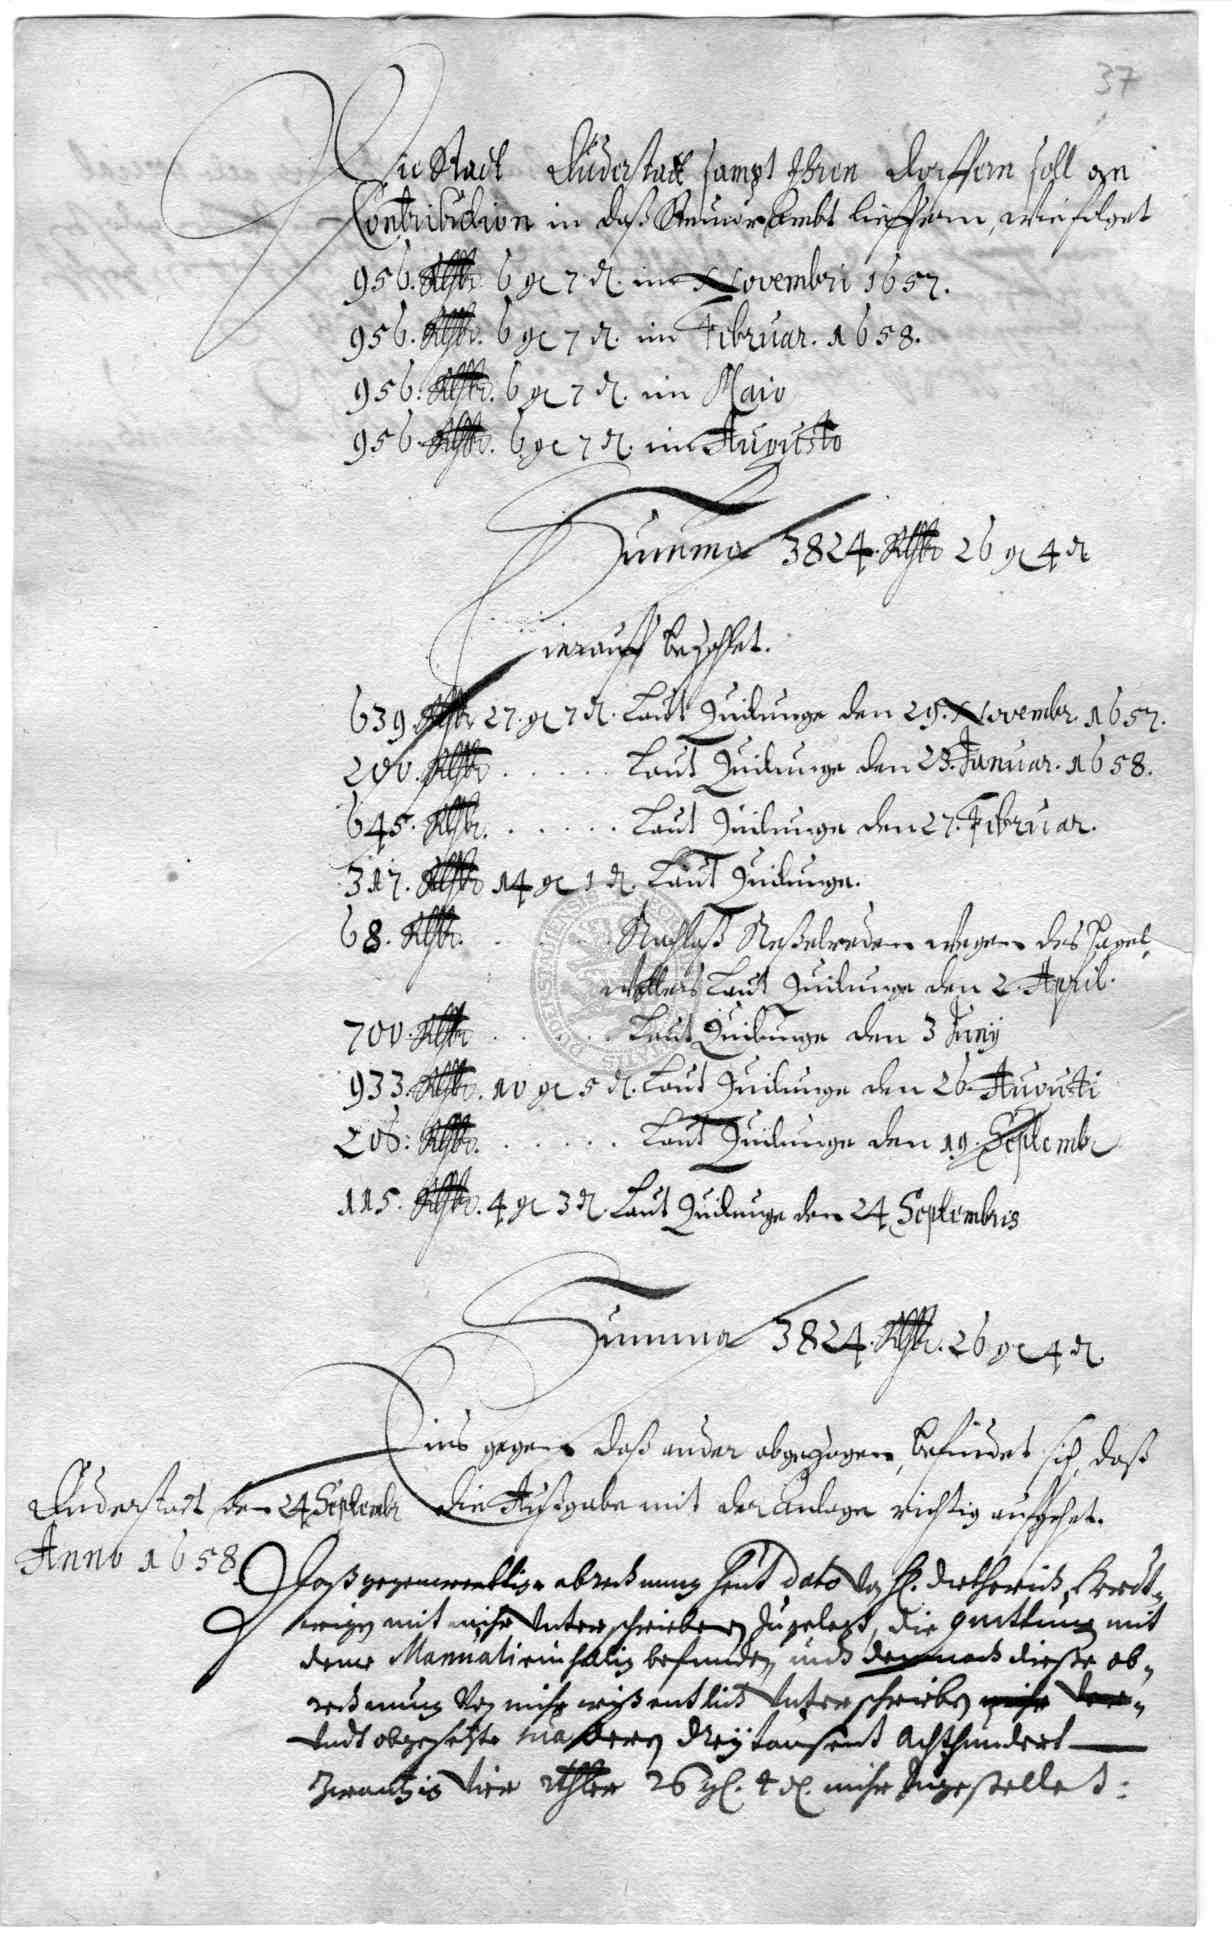 37
Die Stadt Duderstadt sampt Ihren Dorffern soll an
Contribution in daß Steuer Ambt lieffern, wie folget
956. Rthlr 6 gl 7 d. im Novembri 1657.
956. Rthlr. 6 gl 7 d. im Februar. 1658.
956. Rthlr. 6 gl 7 d. im Maio
956 Rthlr. 6 gl 7 d. im Augusto
Summa 3824. Rthlr 26 gl 4 d
Hierauff bezahlet.
639 Rthlr 27. gl 7 d. Laut Quitunge den 29. Novembr. 1657.
200. Rthlr . . . . . Laut Quitunge den 23. Januar. 1658.
645. Rthlr. . . . . . Laut Quitunge den 27. Februar.
317. Rthlr 14 gl 1 d. Laut Quitunge.
68. Rthlr. . . . . . Nachlaß Neßelreden wegen des Hagel
wetters Laut Quitunge den 2. April.
700. Rthlr . . . . . Laut Quitunge den 3 Junij
933. Rthlr. 10 gl 5 d. Laut Quitunge den 26. Augusti
206: Rthlr. . . . . . Laut Quitunge den 19. Septembr
115. Rthlr. 4 gl 3 d. Laut Quitunge den 24 Septembris
Summa 3824. Rthlr. 26 gl 4 d.
Eins gegen daß ander abgezogen, befindet sich, daß
die Außgabe mit der Anlage richtig aufgehet.
Duderstadt den 24 Septembr
Anno 1658
Daß gegenwertige abrechnung heut dato von H. Dietherich
mit mihr unterschrieben zugelegt, die quittung mit
deme Manuali einhelig befunden, undt dieße ab-
rechnung von mihr wißentlich unterschrieben
undt obgesetzte dreÿtausent achthundert
zwantzig vier rthler 26 gl. 4 d. mihr zugestellet: